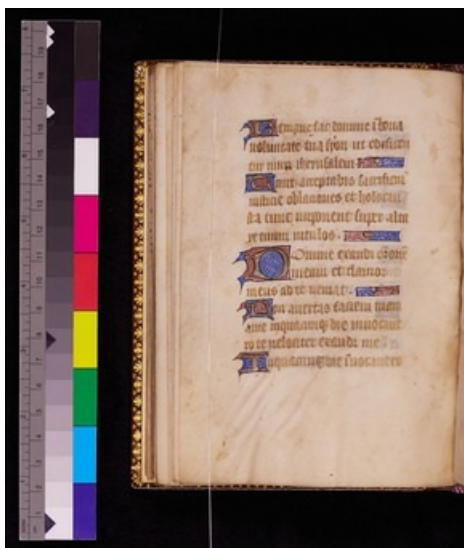 Benigne fac domine i bona
uoluntate tua syon ut edificen
tur muri iherusalem
Tunc acceptabis sacrificiu
iusticie oblaciones et holocau
sta tunc imponent super alta
re tuum uitulos.
Domine exaudi oracione
meam et clamor
meus ad te ueniat.
Non auertas faciem tuam
a me in quacumq die inuocaue
ro te uelociter exaudi me
In quacumq die inuocauero